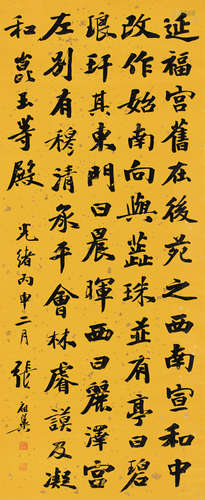 延福宮舊在後苑之西南宣和中
改作始南向與蕋珠並有亭曰碧
琅玕其東門曰晨暉西曰麗澤宮
左別有穆清承平會林睿謨及凝
和崑玉等殿
光緒丙申二月 張